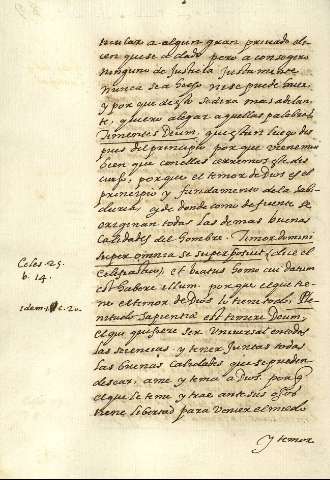 titular a algun gran privado di-
cen que se a dado pero a consegero
ninguno de Justicia Justamente
nunca se a hecho ni se puede hacer,
y por que desto se dira mas adelan-
te, quiero alegar aquellas palabras
Timentes Deum, que estan luego des
pues del principio porque vienen muy
bien que con ellas cerremos este dis
curso, porque el temor de Dios es el
principio y fundamento de la Sabi
duria, y de donde como de fuente se
originan todas las demas buenas
Calidades del hombre. Timor domini
super omnia se superposuit (dice el
Celesiastico) et beatus homo cui datum
est habere illum. porque el que tie
ne el temor de Dios lo tiene todo, Ple
nitudo Sapientia est timere Deum,
el que quisiere ser Universal en todas
las sciencias y tener Juntas todas
las buenas Calidades que se pueden
desear, ame y tema a Dios, porq
el que le teme y trae ante sus ojos
tiene libertad para vencer el miedo
y temor
Celes 25.
b. 14.
Idem, c. 20.